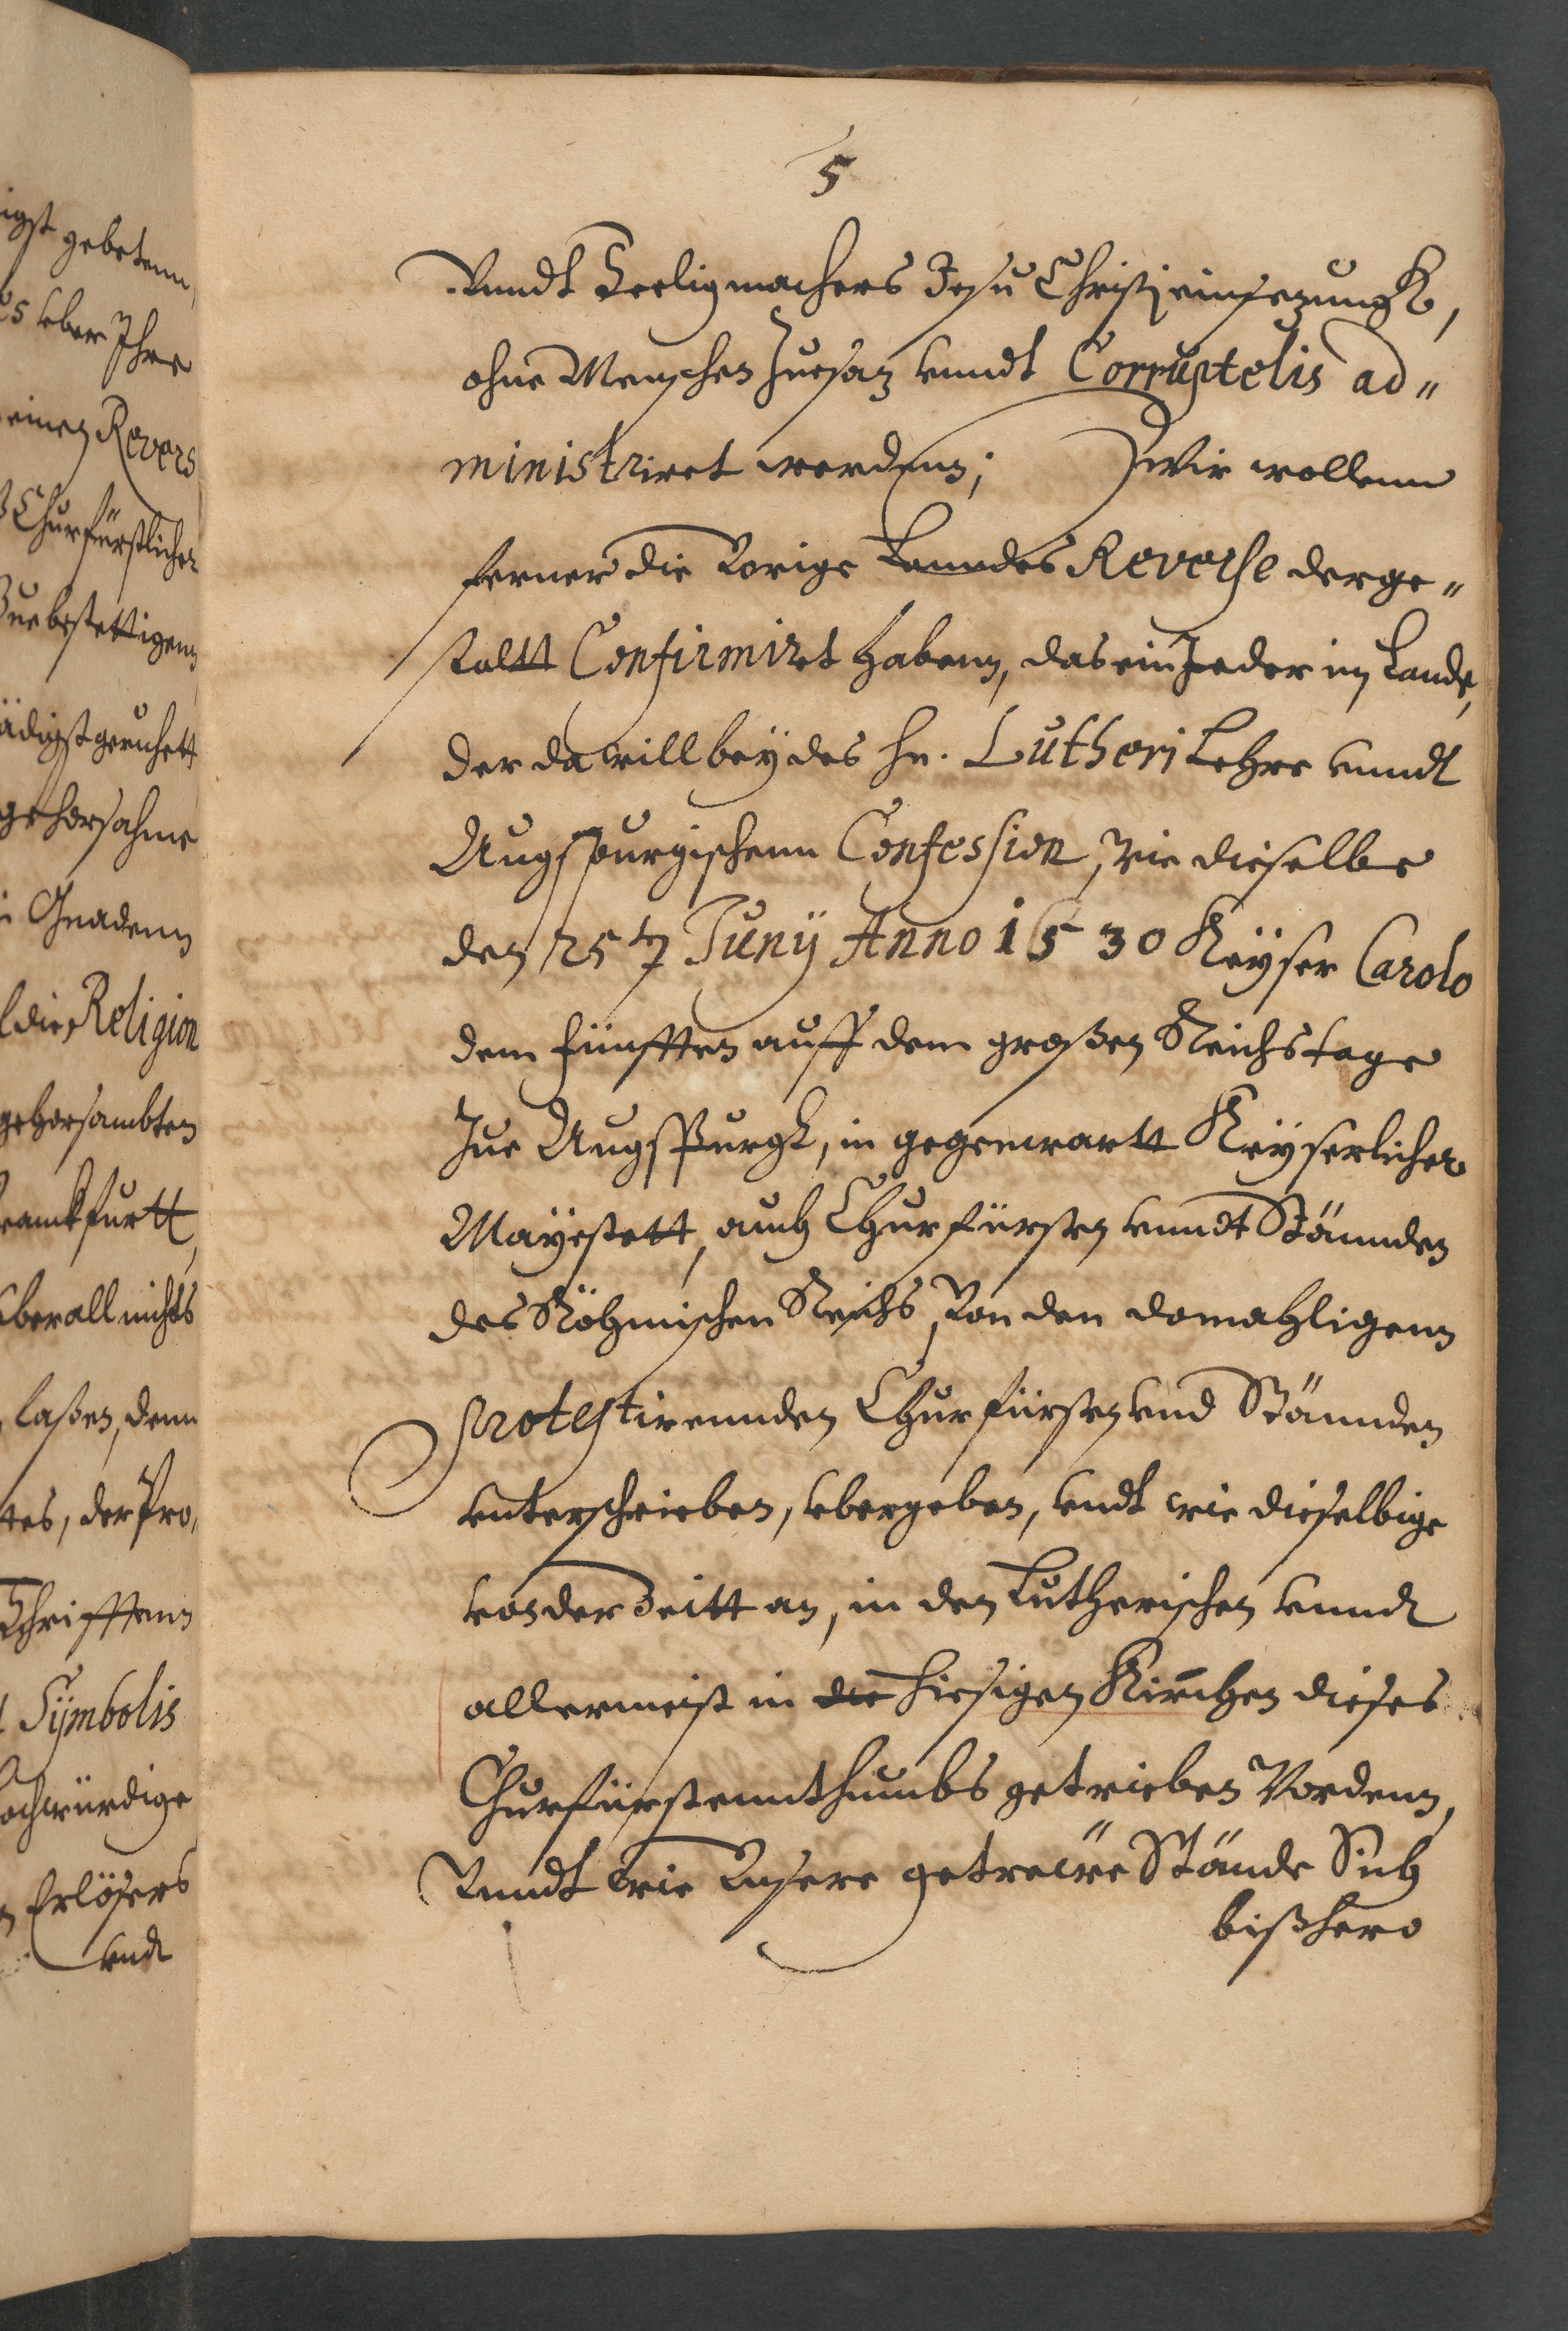 igst gebetenn,
es vber Ihre
einen Revers
Churfürstlicher
Zue bestettigenn
ädigst geruhett
gehorsahme
i Gnadenn
die Religion
gehorsambten
ranckfurtt,
vberall nichts
laßen, denn
tes, der Pro,
Schrifftenn
Symbolis
ochwürdige
Erlösers
vnd
5
Vnndt Seeligmachers Jesu Christi einsezungk,
ohne Menschen Zuesaz vnndt Corruptelis ad"
ministriret werdenn; Wir wollenn
ferner die Vorige Lanndes Reverse derge"
staltt Confirmiret habenn, das ein Jeder im Lande,
der da will bey des hn. Lutheri Lehre vnndt
Augspurgischenn Confession, wie dieselbe
den 25t Juny Anno 1530 Keyser Carolo
dem fünfften auff dem großen Reichstage
Zue Augspurgk, in gegenwartt Keyserlicher
Mayestett, auch Churfürsten vnndt Stännden
des Röhmischen Reichs, Von den domahligenn
protestirennden Churfürsten vnd Stännden
vnterschrieben, vbergeben, vndt wie dieselbige
von der Zeitt an, in den Lutherischen vnndt
allermeist in die hiesigen Kirchen dieses
Churfürstennthumbs getrieben Wordenn,
Vnndt wie Vnsere getrewe Stände Sich
bißhero